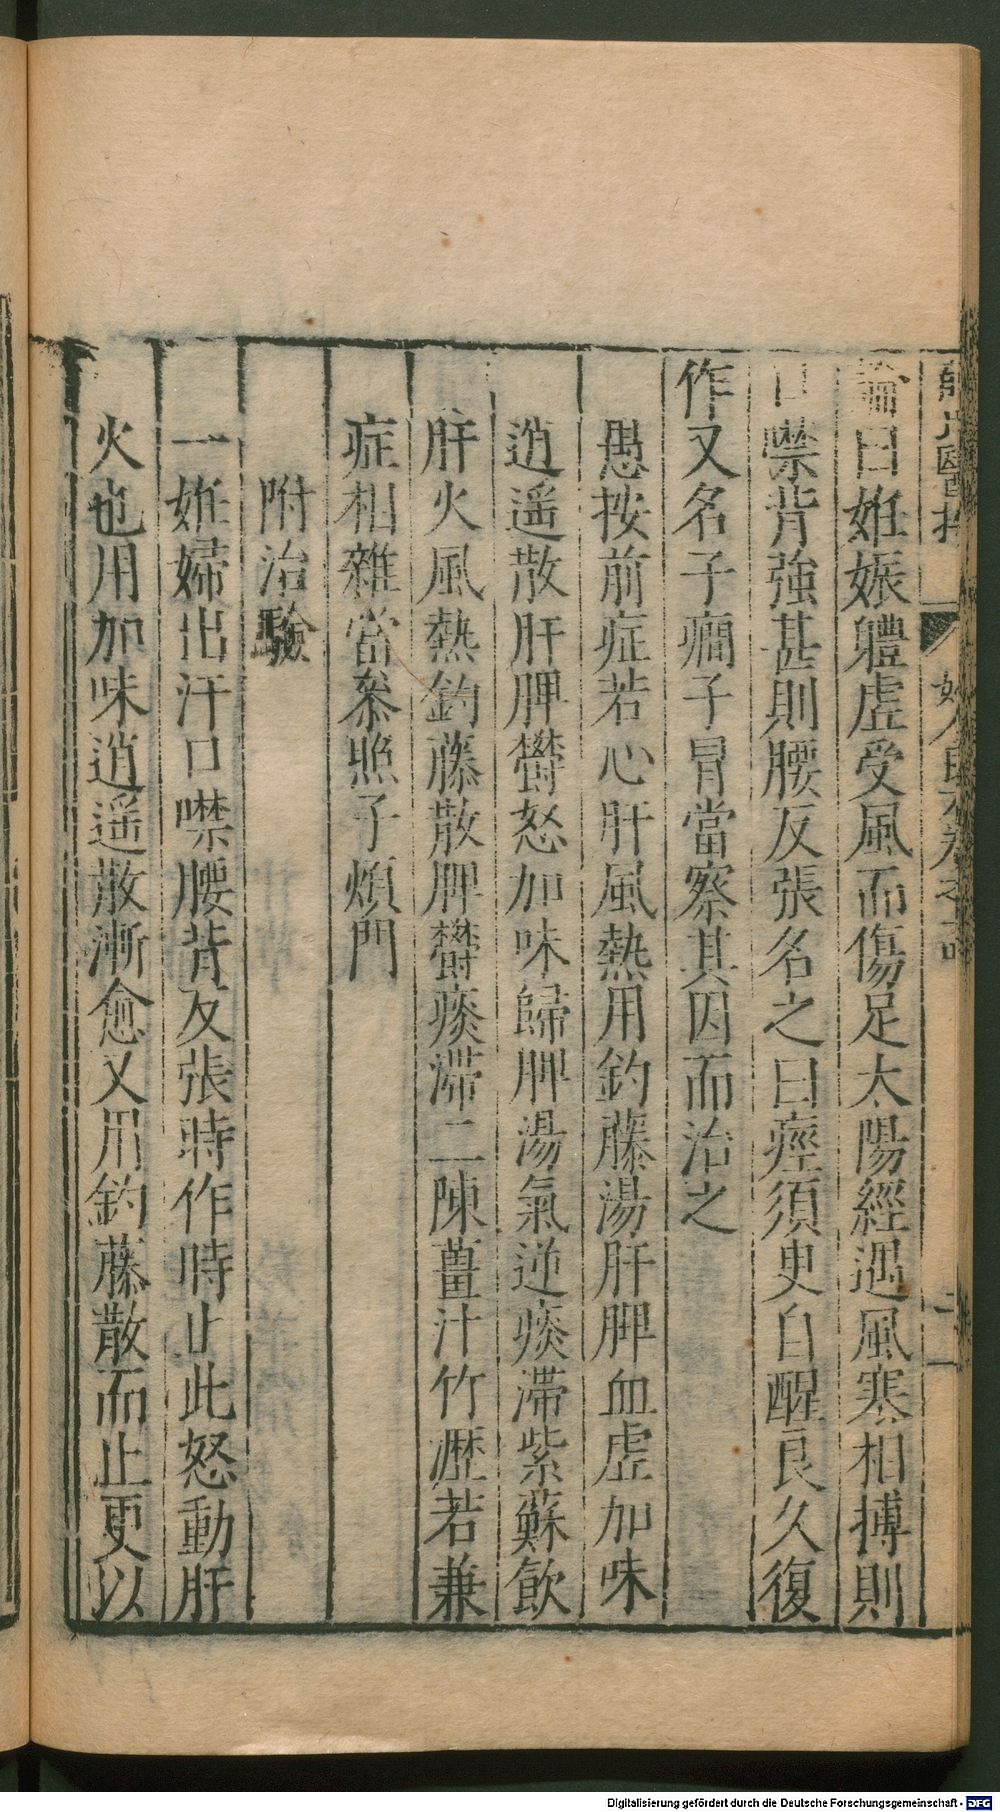 論曰姙娠軆虛受風而傷足太陽經遇風寒相搏則
口噤背強甚則腰反張名之曰痙須臾自醒良久復
作又名子癎子冒當察其因而治之
愚按前症若心肝風熱用釣藤湯肝脾血虛加味
逍遥散肝脾欝怒加味歸脾湯氣逆痰滯紫蘇飲
肝火風熱釣藤散脾欝痰滯二陳薑汁竹瀝若兼
症相雜當叅照子煩門
附治驗
一姙婦出汗口噤腰背反張時作時止此怒動肝
火也用加味逍遥散漸愈又用釣藤散而止更以
Digitalisierung gefördert durch die Deutsche Forschungsgemeinschaft - DFG